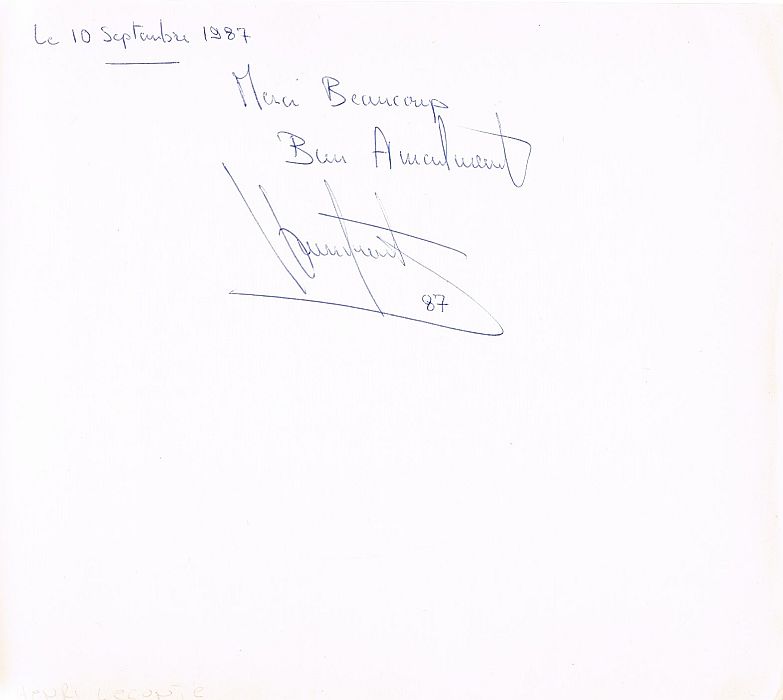 Le 10 Septembre 1987
Merci Beaucoup
Bien Amicalement
87
HENRI LECONTE